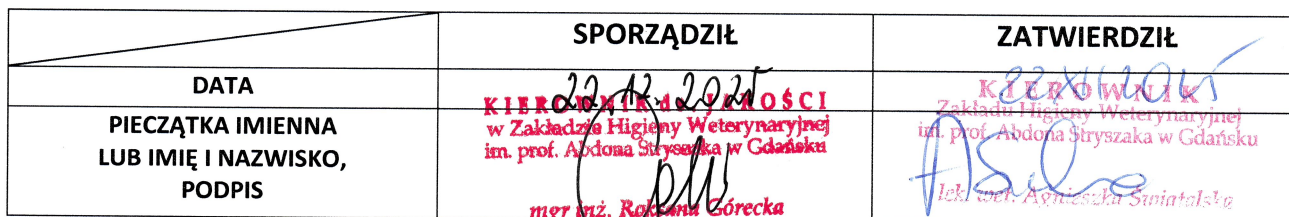 SPORZĄDZIŁ ZATWIERDZIŁ
DATA 22.12.2025
PIECZĄTKA IMIENNA
LUB IMIĘ I NAZWISKO,
PODPIS
KIEROWNIK ds. JAKOŚCI
w Zakładzie Higieny Weterynaryjnej
im. prof. Abdona Stryszaka w Gdańsku
mgr inż. Roksana Górecka
KIEROWNIK
Zakładu Higieny Weterynaryjnej
im. prof. Abdona Stryszaka w Gdańsku
lek. wet. Agnieszka